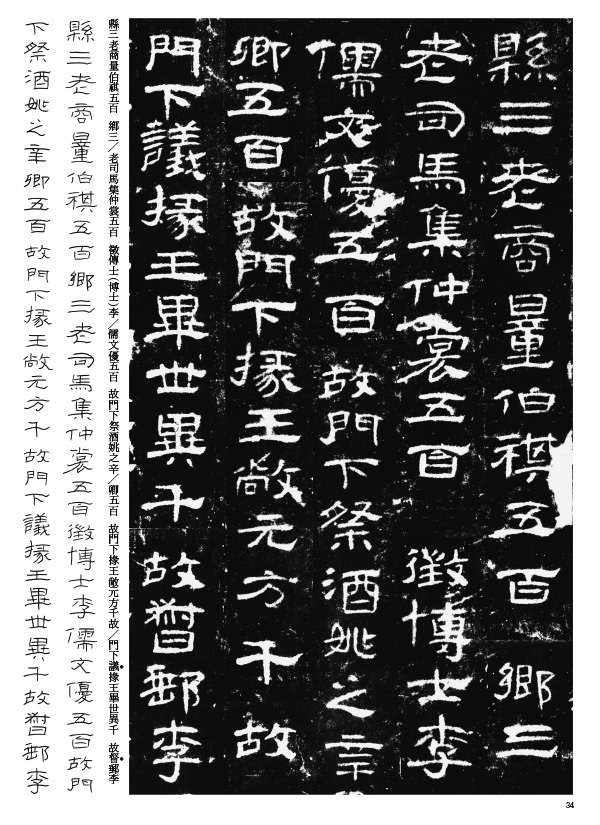 縣三老商量伯祺五百 鄉三
老司馬集仲裳五百 徵博士李
儒文優五百 故門下祭酒姚之辛
卿五百 故門下掾王敞元方千 故
門下議掾王畢世異千 故督郵李
縣三老商量伯祺五百 鄉三／老司馬集仲裳五百 徵傅士(博士)李／儒文優五百 故門下祭酒姚之辛／卿五百 故門下掾王敞元方千故／門下議掾王畢世異千 故督郵李
縣三老商量伯祺五百鄉三老司馬集仲裳五百徵博士李儒文優五百故門
下祭酒姚之辛卿五百故門下掾王敞元方千故門下議掾王畢世異千故督郵李
34